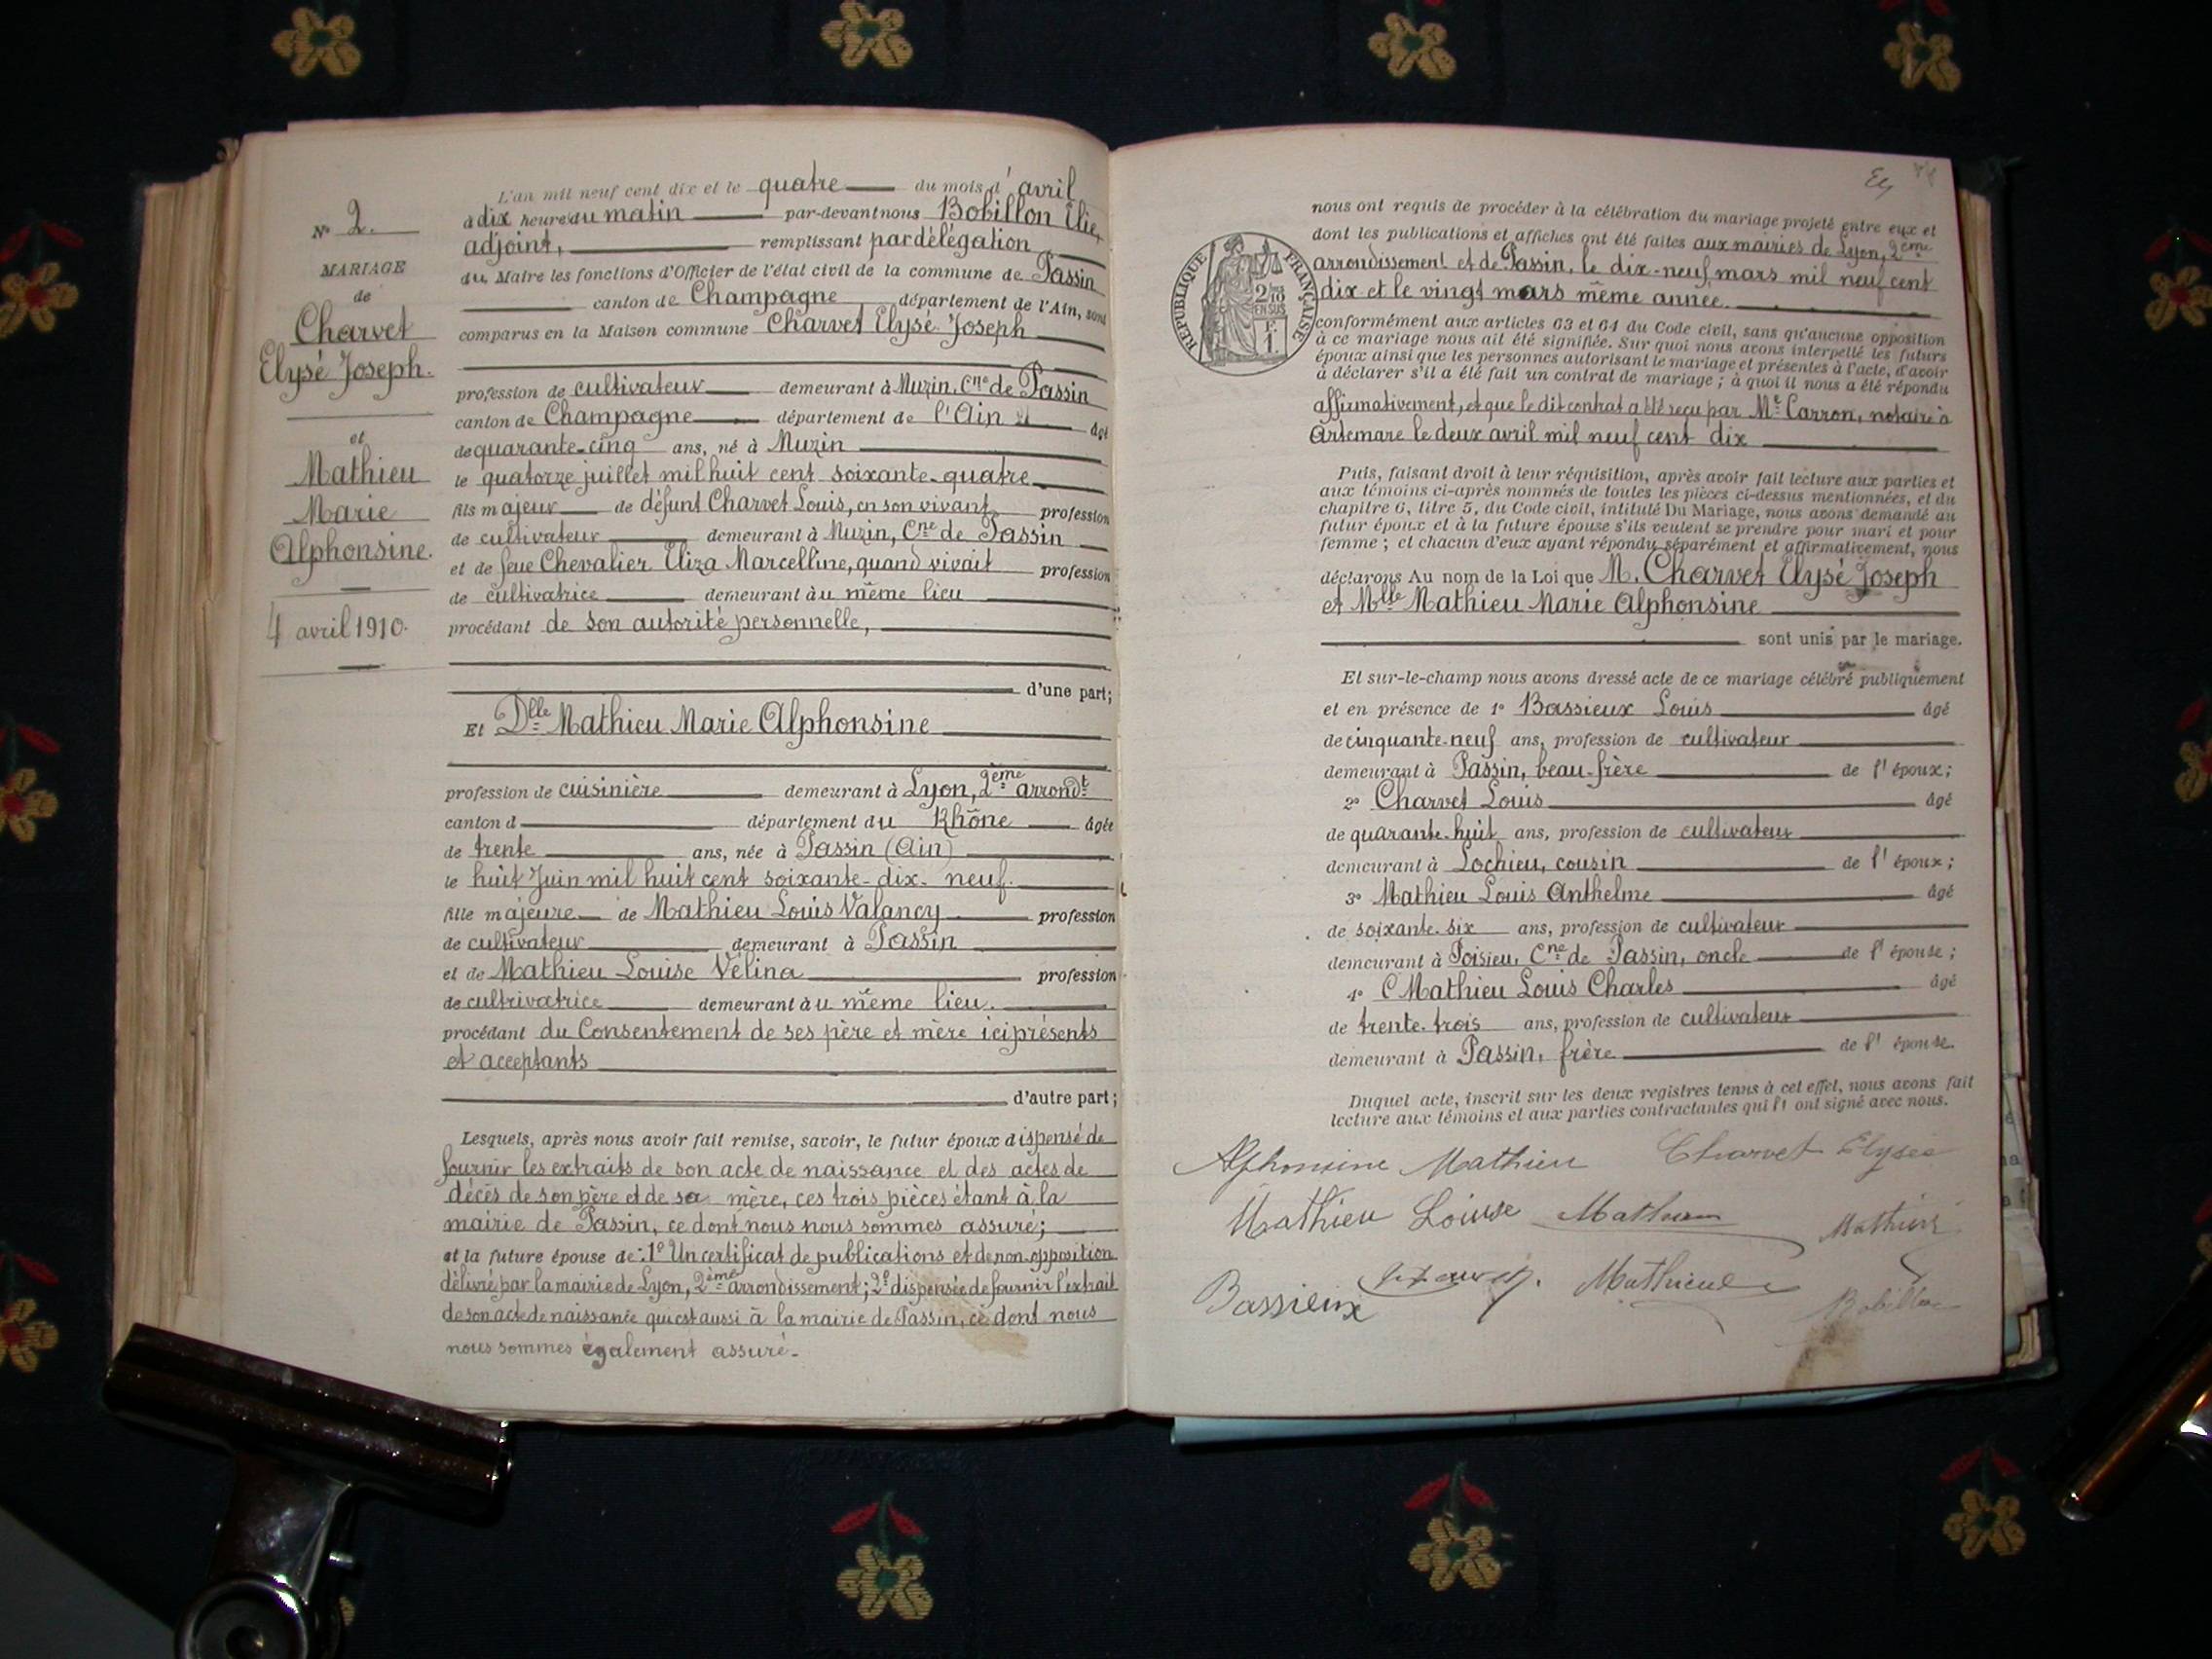 N° 2.
MARIAGE
de
Charvet
Elysé Joseph.
et
Mathieu
Marie
Alphonsine.
4 avril 1910.
L'an mil neuf cent dix et le quatre du mois d'avril
à dix heure du matin par-devant nous Bobillon Élie,
adjoint, remplissant par délégation
du Maire les fonctions d'Officier de l'état civil de la commune de Passin
canton de Champagne département de l'Ain, sont
comparus en la Maison commune Charvet Elysé Joseph
profession de cultivateur demeurant à Muzin, Cne de Passin
canton de Champagne département de l'Ain âgé
de quarante-cinq ans, né à Muzin
le quatorze juillet mil huit cent soixante-quatre
fils majeur de défunt Charvet Louis, en son vivant profession
de cultivateur demeurant à Muzin, Cne de Passin
et de feue Chevalier Eliza Marcelline, quand vivait profession
de cultivatrice demeurant au même lieu
procédant de son autorité personnelle,
d'une part;
Et Dlle Mathieu Marie Alphonsine
profession de cuisinière demeurant à Lyon, 2ème arrondt
canton d département du Rhône âgée
de trente ans, née à Passin (Ain)
le huit Juin mil huit cent soixante-dix-neuf.
fille majeure de Mathieu Louis Valancy profession
de cultivateur demeurant à Passin
et de Mathieu Louise Vélina profession
de cultrivatrice demeurant au même lieu.
procédant du Consentement de ses père et mère ici présents
et acceptants
d'autre part;
Lesquels, après nous avoir fait remise, savoir, le futur époux dispensé de
fournir les extraits de son acte de naissance et des actes de
décès de son père et de sa mère, ces trois pièces étant à la
mairie de Passin, ce dont nous nous sommes assuré;
et la future épouse de: 1° Un certificat de publications et de non-opposition
délivré par la mairie de Lyon, 2ème arrondissement; 2° dispensée de fournir l'extrait
de son acte de naissance qui est aussi à la mairie de Passin, ce dont nous
nous sommes également assuré.
RÉPUBLIQUE FRANÇAISE
2/10
EN SUS
F.
1.
nous ont requis de procéder à la célébration du mariage projeté entre eux et
dont les publications et affiches ont été faites aux mairies de Lyon, 2ème
arrondissement et de Passin, le dix-neuf mars mil neuf cent
dix et le vingt mars même année.
conformément aux articles 63 et 64 du Code civil, sans qu'aucune opposition
à ce mariage nous ait été signifiée. Sur quoi nous avons interpellé les futurs
époux ainsi que les personnes autorisant le mariage et présentes à l'acte, d'avoir
à déclarer s'il a été fait un contrat de mariage; à quoi il nous a été répondu
affirmativement, et que le dit contrat a été reçu par Me Carron, notaire à
Artemare le deux avril mil neuf cent dix
Puis, faisant droit à leur réquisition, après avoir fait lecture aux parties et
aux témoins ci-après nommés de toutes les pièces ci-dessus mentionnées, et du
chapitre 6, titre 5, du Code civil, intitulé Du Mariage, nous avons demandé au
futur époux et à la future épouse s'ils veulent se prendre pour mari et pour
femme; et chacun d'eux ayant répondu séparément et affirmativement, nous
déclarons Au nom de la Loi que M. Charvet Elysé Joseph
et Mlle Mathieu Marie Alphonsine
sont unis par le mariage.
Et sur-le-champ nous avons dressé acte de ce mariage célébré publiquement
et en présence de 1° Bassieux Louis âgé
de cinquante-neuf ans, profession de cultivateur
demeurant à Passin, beau-frère de l'époux;
2° Charvet Louis âgé
de quarante-huit ans, profession de cultivateur
demeurant à Lochieu, cousin de l'époux;
3° Mathieu Louis Anthelme âgé
de soixante-six ans, profession de cultivateur
demeurant à Poisieu, Cne de Passin, oncle de l'épouse;
4° Mathieu Louis Charles âgé
de trente-trois ans, profession de cultivateur
demeurant à Passin, frère de l'épouse.
Duquel acte, inscrit sur les deux registres tenus à cet effet, nous avons fait
lecture aux témoins et aux parties contractantes qui l'ont signé avec nous.
Alphonsine Mathieu Charvet Elysée
Mathieu Louise Mathieu Mathieu
Bassieux Charvet. Mathieu Bobillon